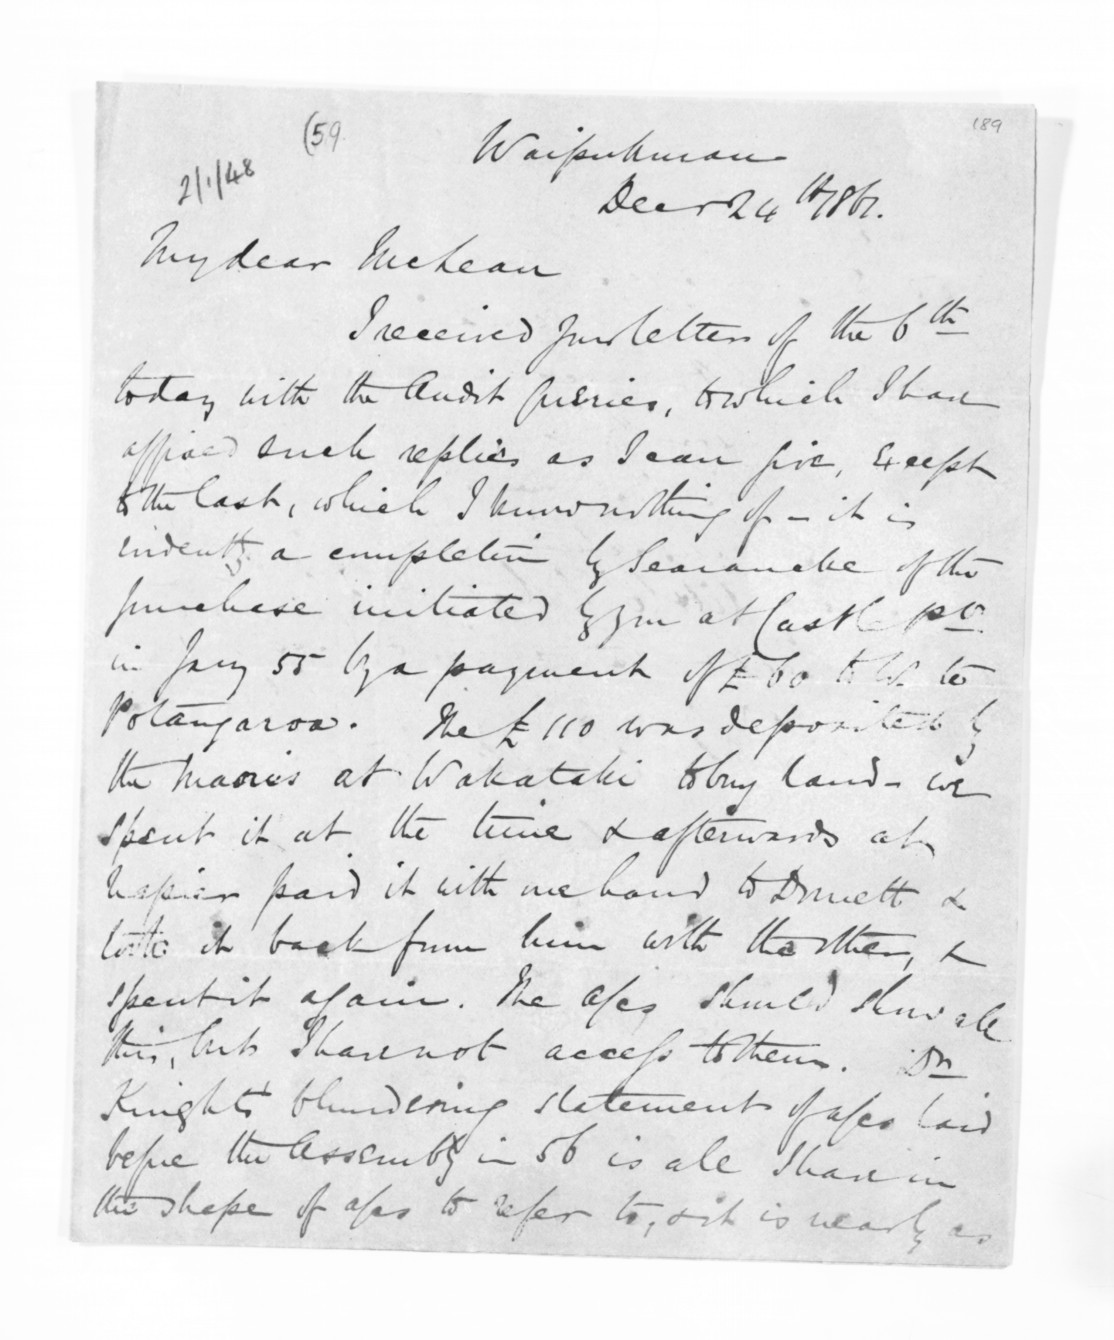 (59.
189
2/1/48
Waipukurau
Decr 24th 1861.
My dear McLean
I received your letters of the 6th
today with the Audit queries, to which I have
affixed such replies as I can give, except
to the last, which I know nothing of - it is
evidently a completion by Searancke of the
purchase initiated by you at Castle Pt
in Jany 55 by a payment of £60 to W. te
Potangaroa. The £110 was deposited by
the Maories at Wakataki to buy land - we
spent it at the time & afterwards at
Napier paid it with one hand to Domett &
took it back from him with the other, &
spent it again. The a/cs should show all
this, but I have not access to them. Dr
Knight's blundering statement of a/cs laid
before the Assembly in 56 is all I have in
the shape of a/cs to refer to, & it is nearly as